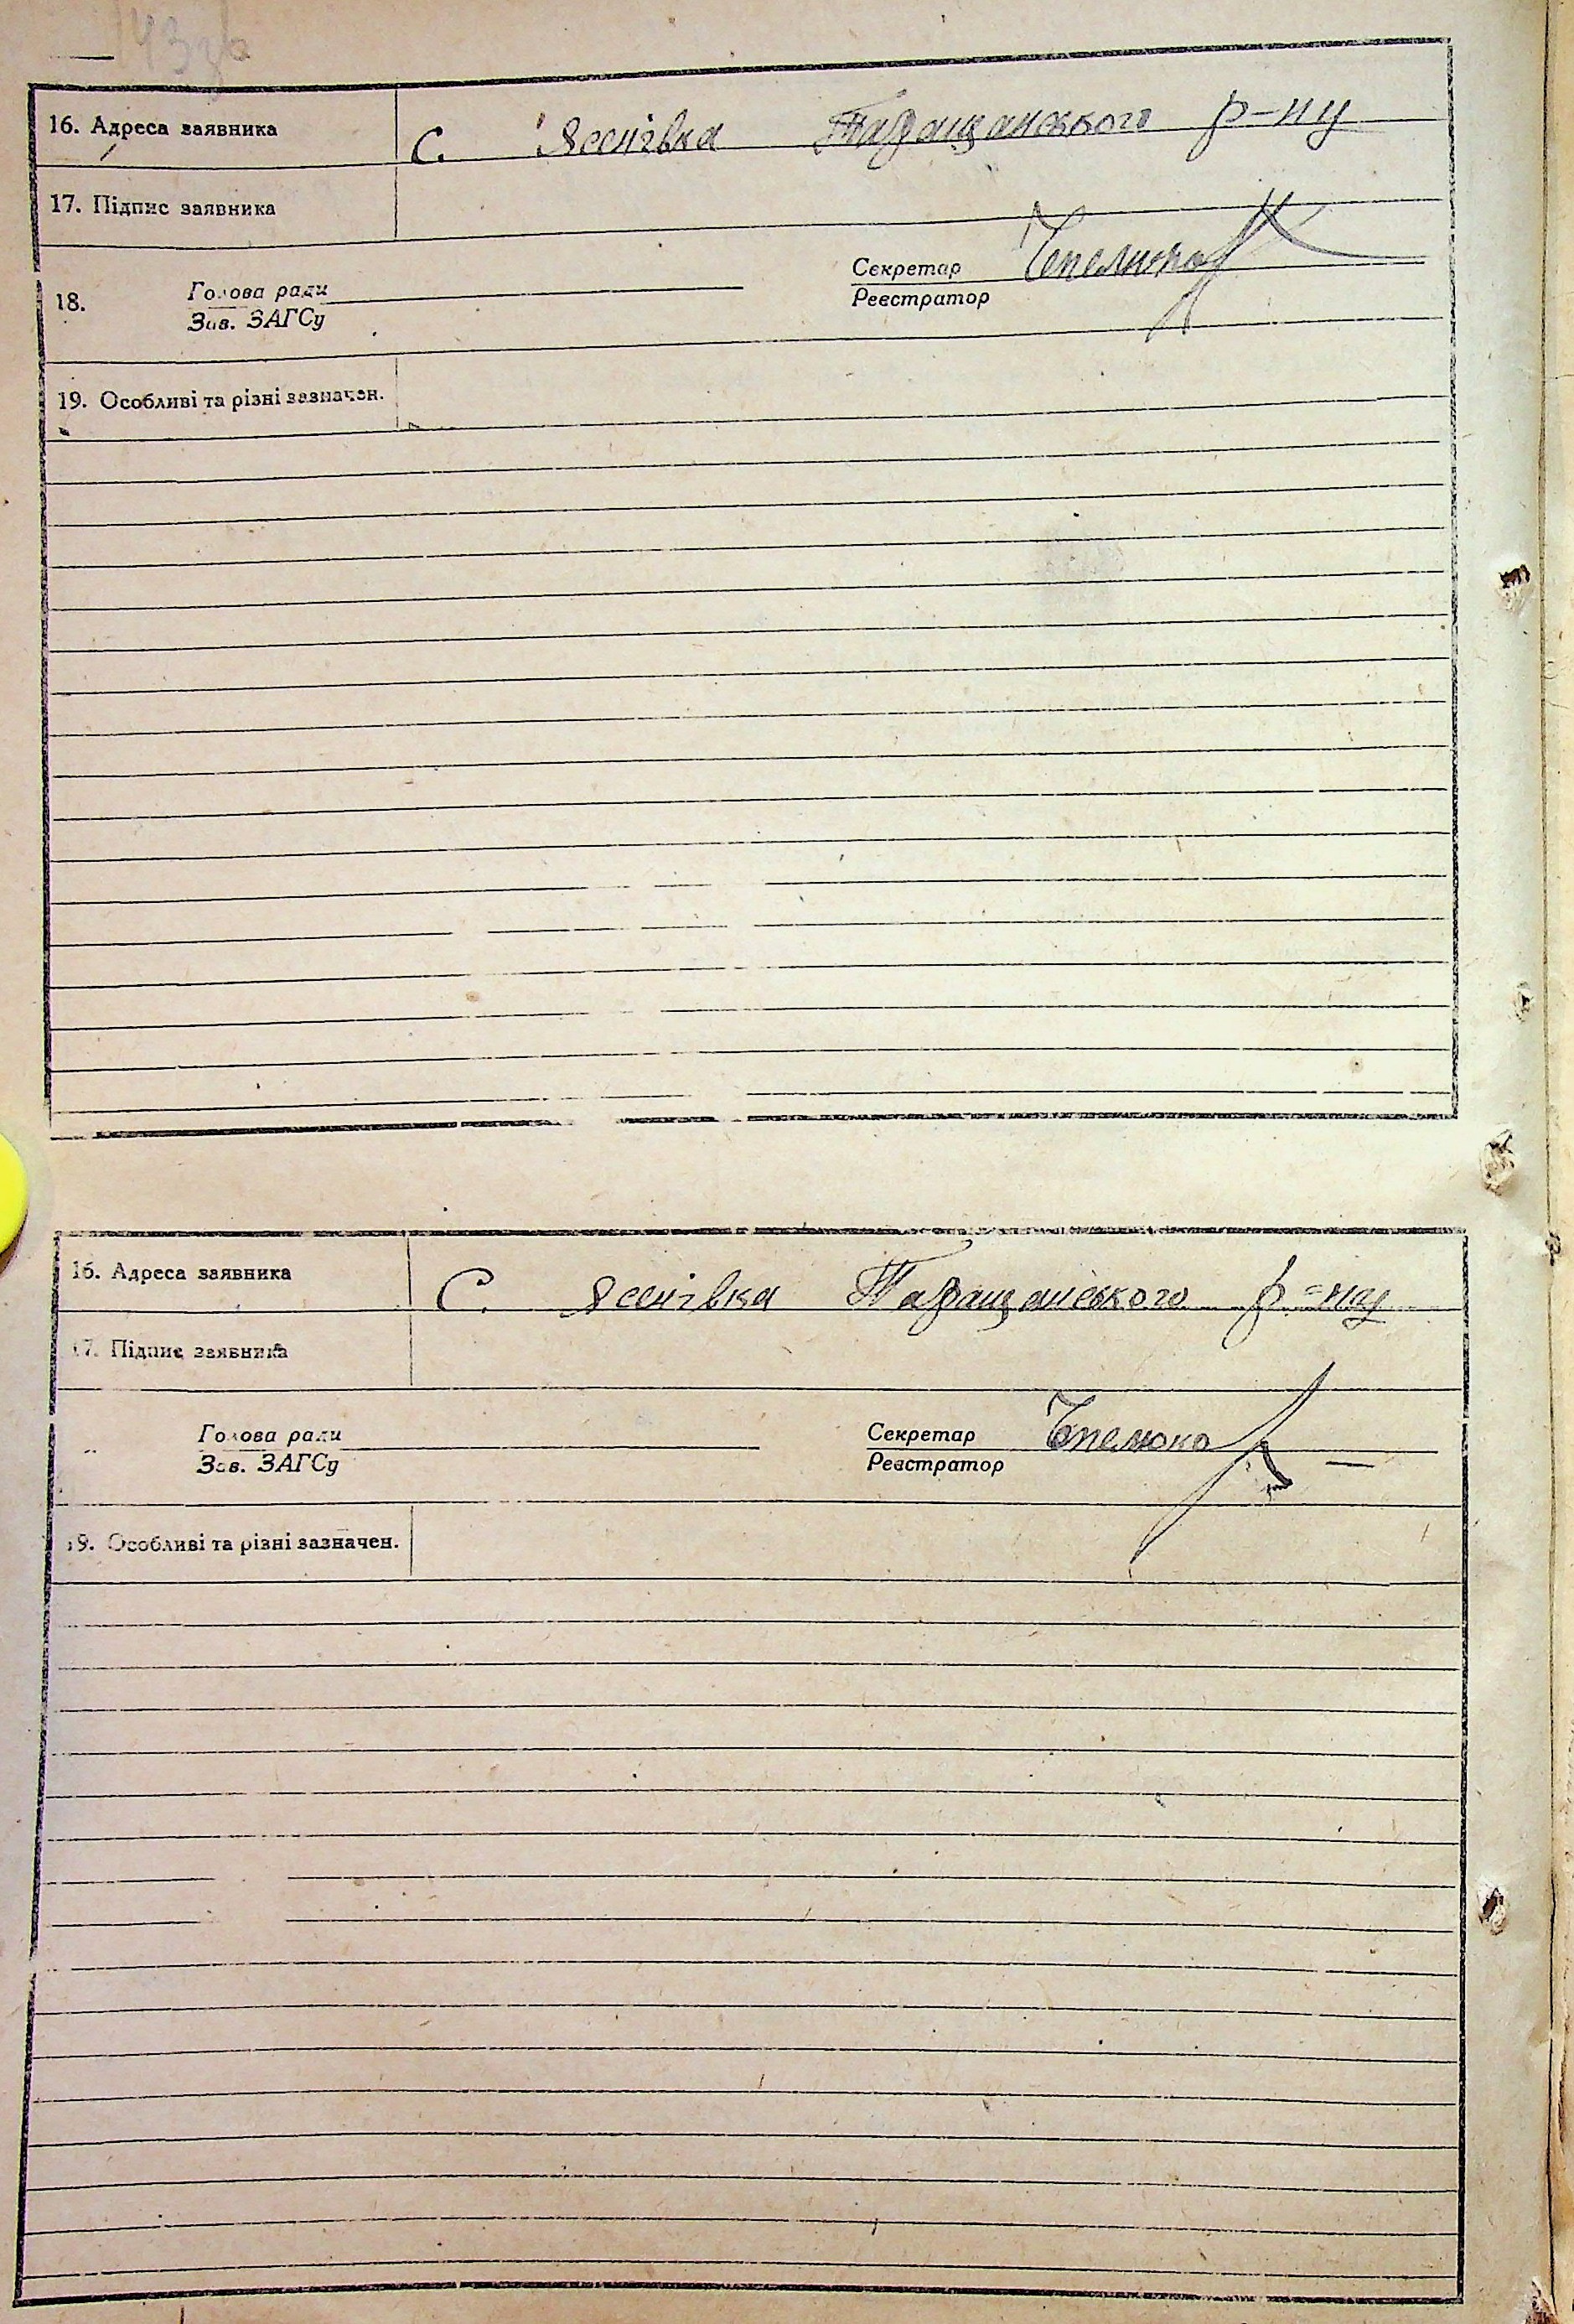 143зв
16. Адреса заявника С. Ясенівка Таращанського р-ну
17. Підпис заявника
Секретар
18. Голова ради
Реєстратор
Зав. ЗАГСу
19. Особливі та різні зазначен.
16. Адреса заявника С. Ясенівка Таращанського р-ну
17. Підпис заявника
Голова ради Секретар
Зав. ЗАГСу Реєстратор
19. Особливі та різні зазначен.